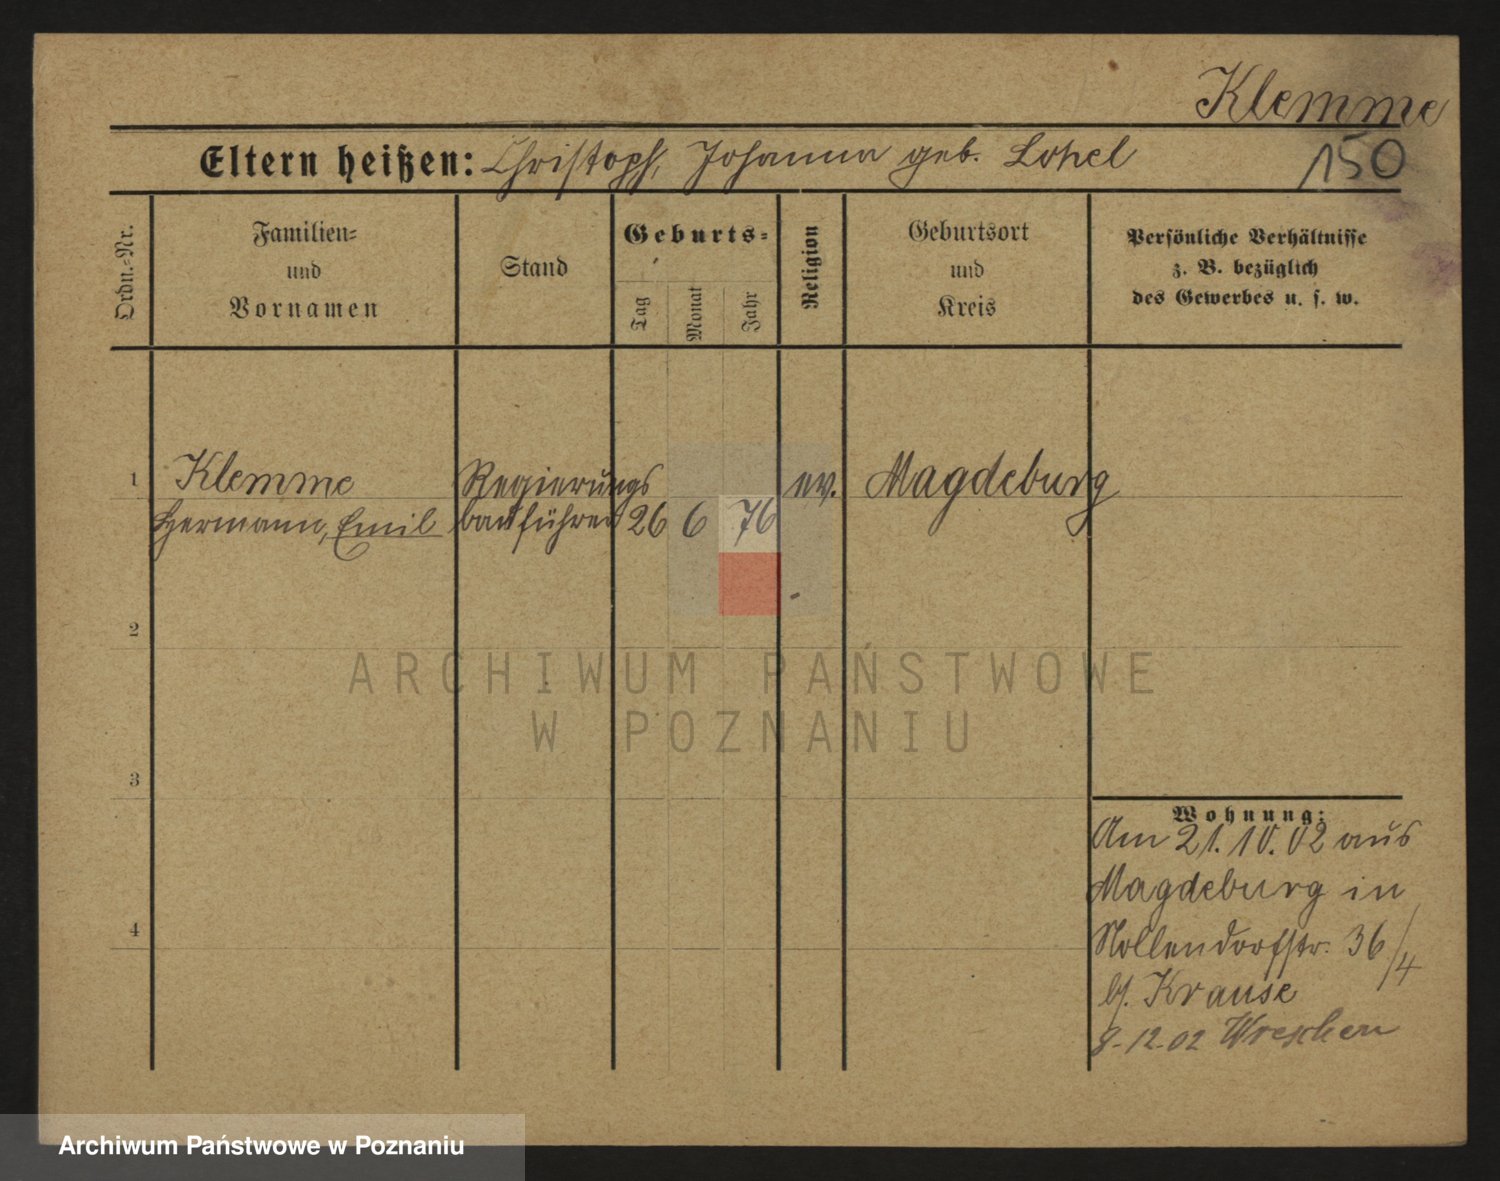 Klemme
Eltern heißen: Christoph, Johanna geb.
150
Ordn.-Nr.
Familien-
und
Vornamen
Stand
Geburts-
Tag
Monat
Jahr
Religion
Geburtsort
und
Kreis
Persönliche Verhältnisse
z. B. bezüglich
des Gewerbes u. s. w.
1
Klemme
Hermann, Emil
Regierungs
bauführer
26 6 76
ev.
Magdeburg
2
3
4
Wohnung:
Am 21.10.02 aus
Magdeburg in
Nollendorfstr. 36/4
bf. Krause
9.12.02 Wreschen
ARCHIWUM PAŃSTWOWE
W POZNANIU
Archiwum Państwowe w Poznaniu